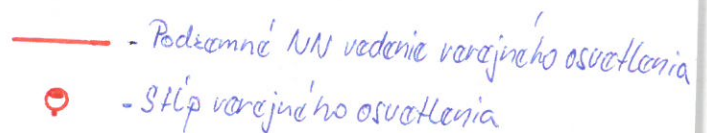 - Podzemné NN vedenie verejného osvetlenia
- Stĺp verejného osvetlenia